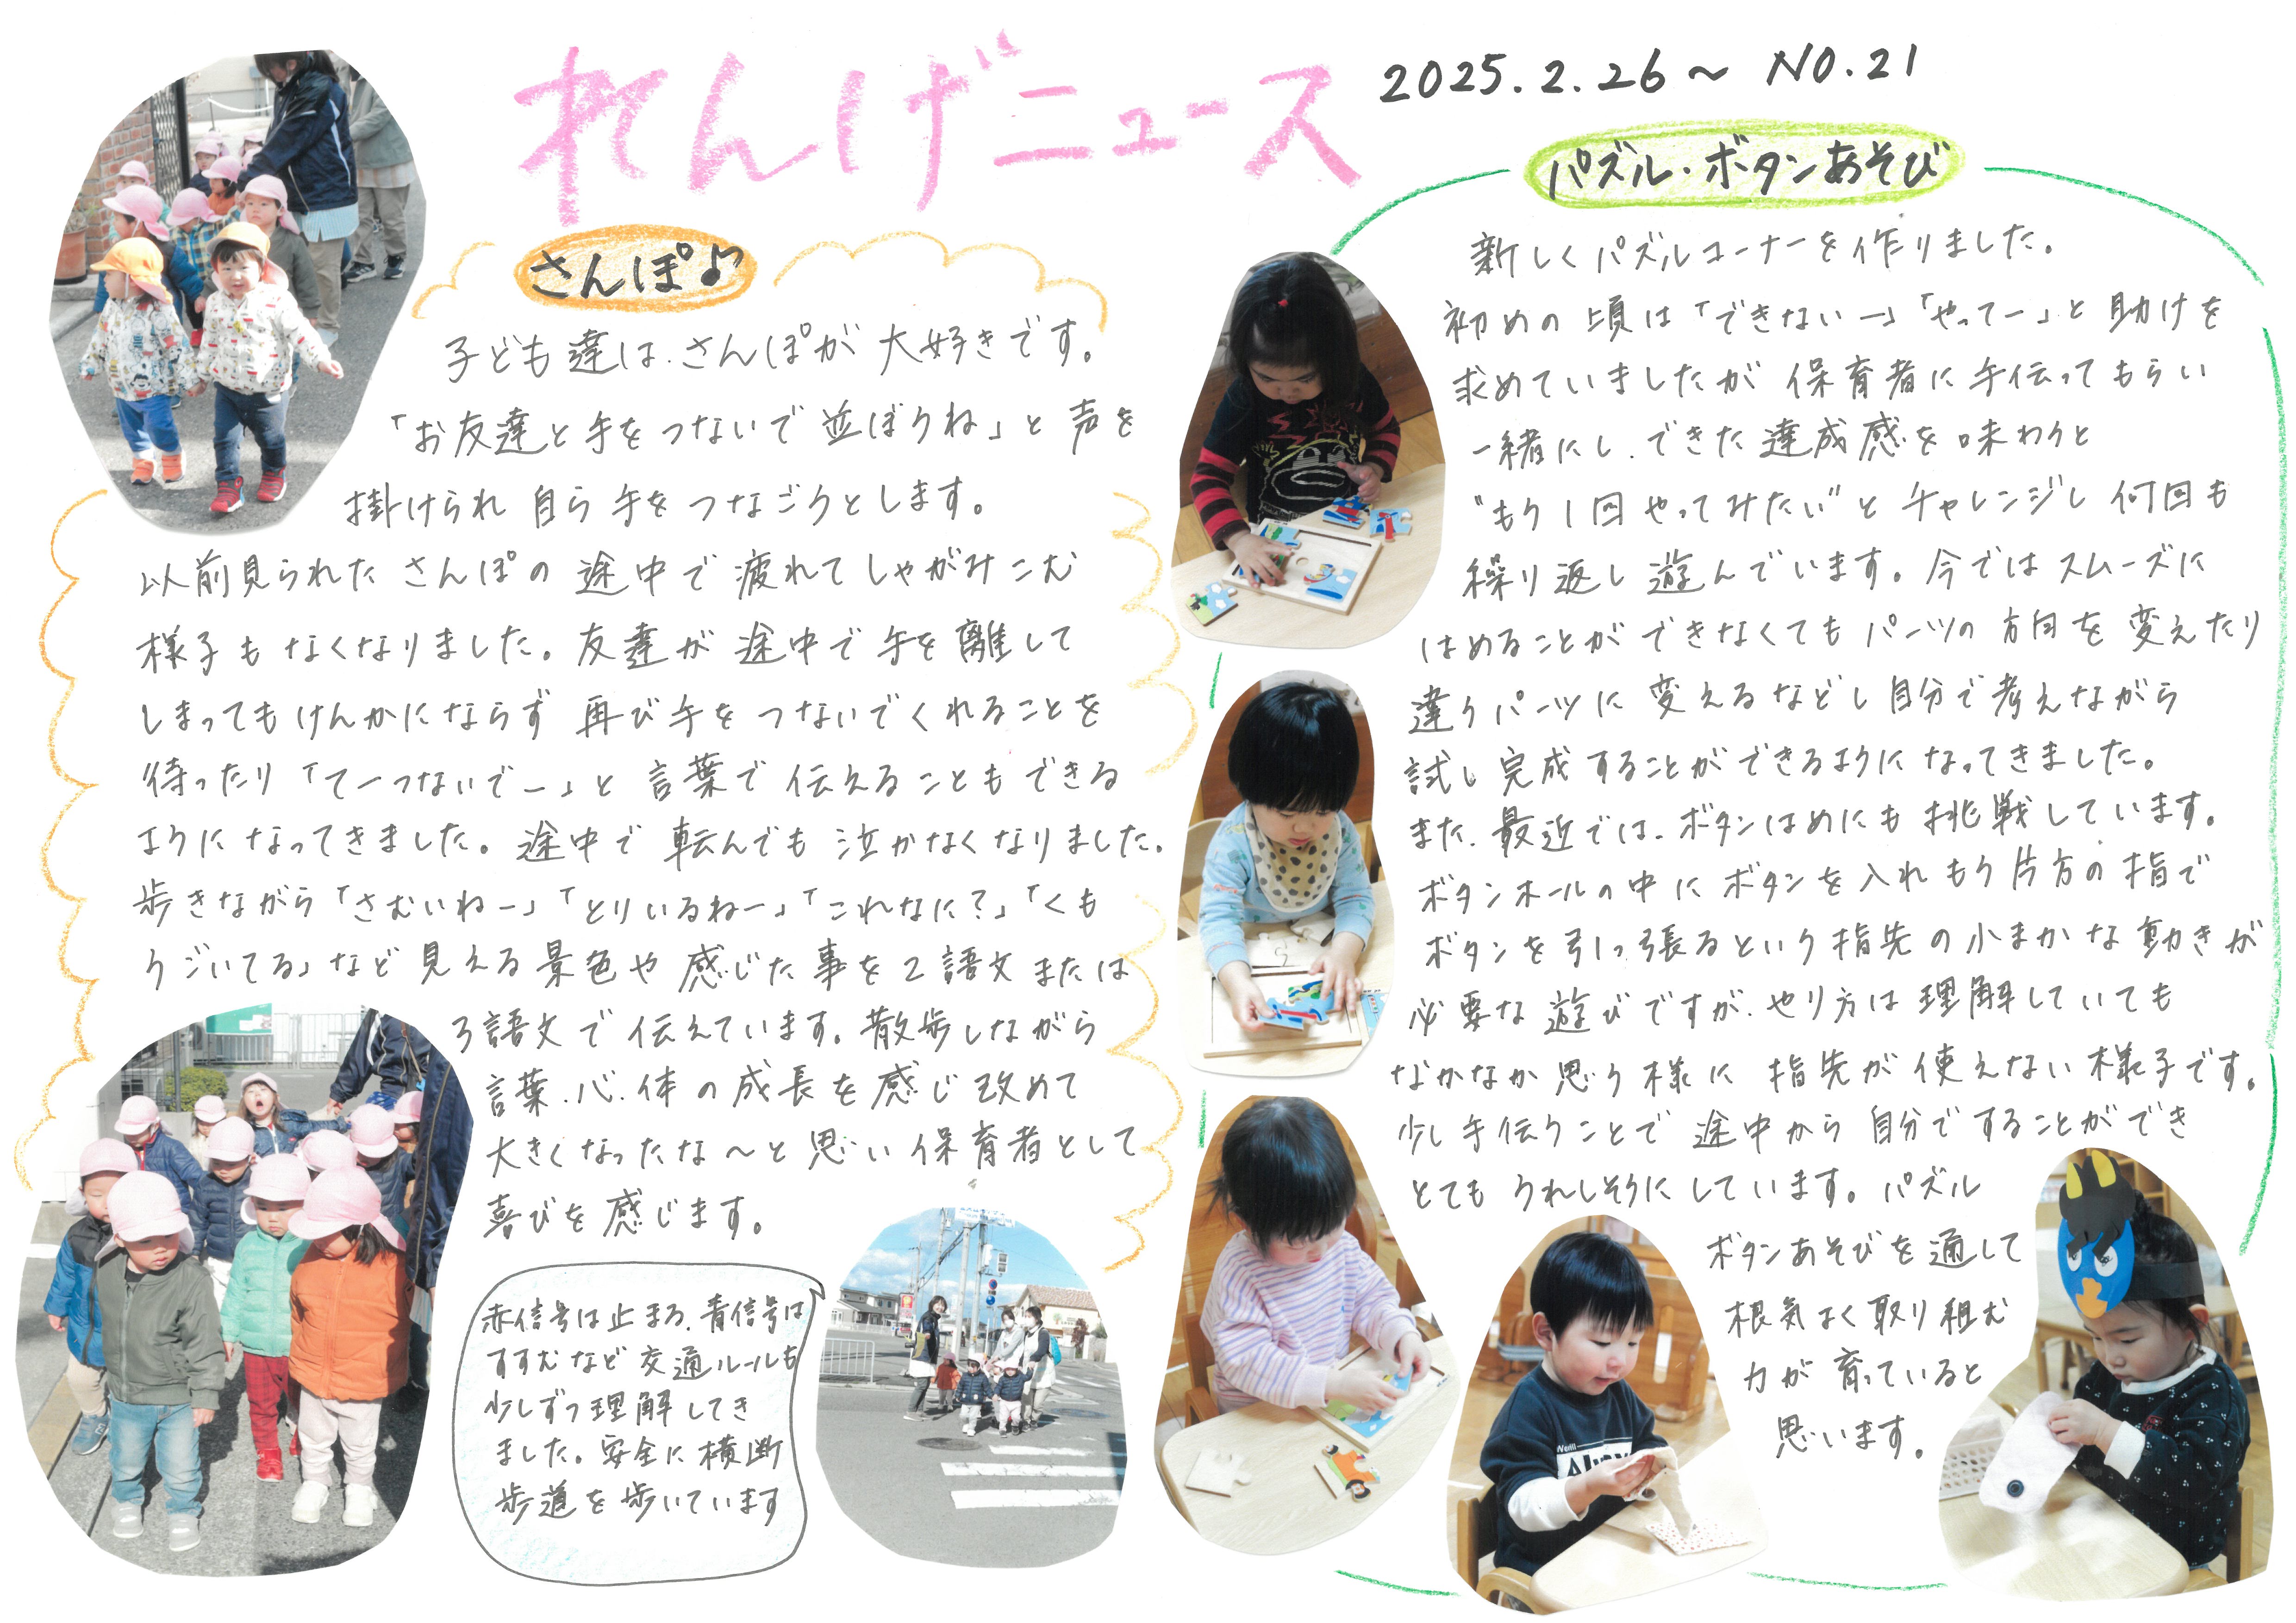 れんげニュース
2025.2.26〜 NO.21
さんぽ♪
子ども達は、さんぽが大好きです。
「お友達と手をつないで並ぼうね」と声を
掛けられ自ら手をつなごうとします。
以前見られたさんぽの途中で疲れてしゃがみこむ
様子もなくなりました。友達が途中で手を離して
しまってもけんかにならず再び手をつないでくれることを
待ったり「てーつないでー」と言葉で伝えることもできる
ようになってきました。途中で転んでも泣かなくなりました。
歩きながら「さむいねー」「とりいるねー」「これなに?」「くも
うごいてる」など見える景色や感じた事を2語文または
3語文で伝えています。散歩しながら
言葉、心、体の成長を感じ改めて
大きくなったな〜と思い保育者として
喜びを感じます。
赤信号は止まる、青信号は
すすむなど交通ルールも
少しずつ理解してき
ました。安全に横断
歩道を歩いています
パズル・ボタンあそび
新しくパズルコーナーを作りました。
初めの頃は「できないー」「やってー」と助けを
求めていましたが保育者に手伝ってもらい
一緒にし、できた達成感を味わうと
"もう1回やってみたい"とチャレンジし何回も
繰り返し遊んでいます。今ではスムーズに
はめることができなくてもパーツの方向を変えたり
違うパーツに変えるなどし自分で考えながら
試し完成することができるようになってきました。
また、最近では、ボタンはめにも挑戦しています。
ボタンホールの中にボタンを入れもう片方の指で
ボタンを引っ張るという指先の小まかな動きが
必要な遊びですが、やり方は理解していても
なかなか思う様に指先が使えない様子です。
少し手伝うことで途中から自分ですることができ
とてもうれしそうにしています。パズル
ボタンあそびを通して
根気よく取り組む
力が育っていると
思います。